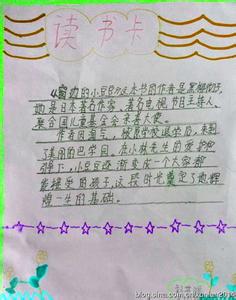 读书卡
《窗边的小豆豆》这本书的作者是黑柳彻子,
她是日本著名作家、著名电视节目主持人、
联合国儿童基金会亲善大使。
作者因淘气,被原学校退学后,来到
了巴学园。在小林先生的爱护和
引导下,小豆豆逐渐变成一个大家都
能接受的孩子,这段时光奠定了她辉
煌一生的基础。